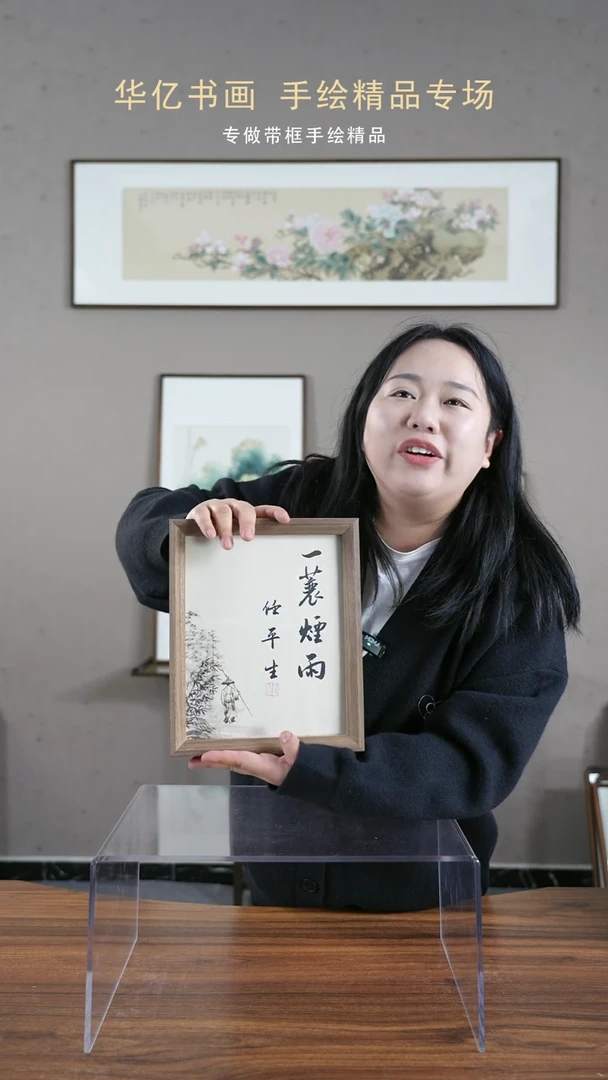 华亿书画 手绘精品专场
专做带框手绘精品
一蓑煙雨
任平生